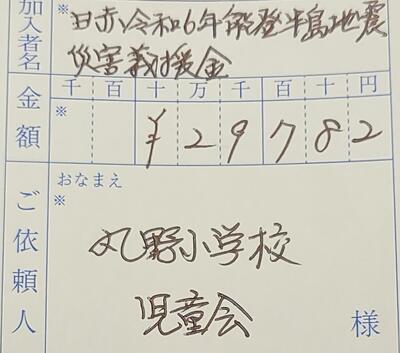 加入者名
※日赤令和6年能登半島地震
災害義援金
金額
千百十万千百十円
※
¥29782
ご依頼人
おなまえ
※
丸野小学校
児童会
様